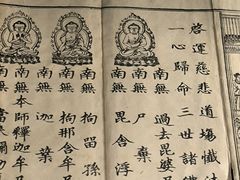 啓運慈悲道場懺法
一心歸命三世諸
過去毘婆
南無尸棄
南無毘舍浮
南無拘留孫
南無拘那含牟
南無迦葉
南無本師釋迦牟